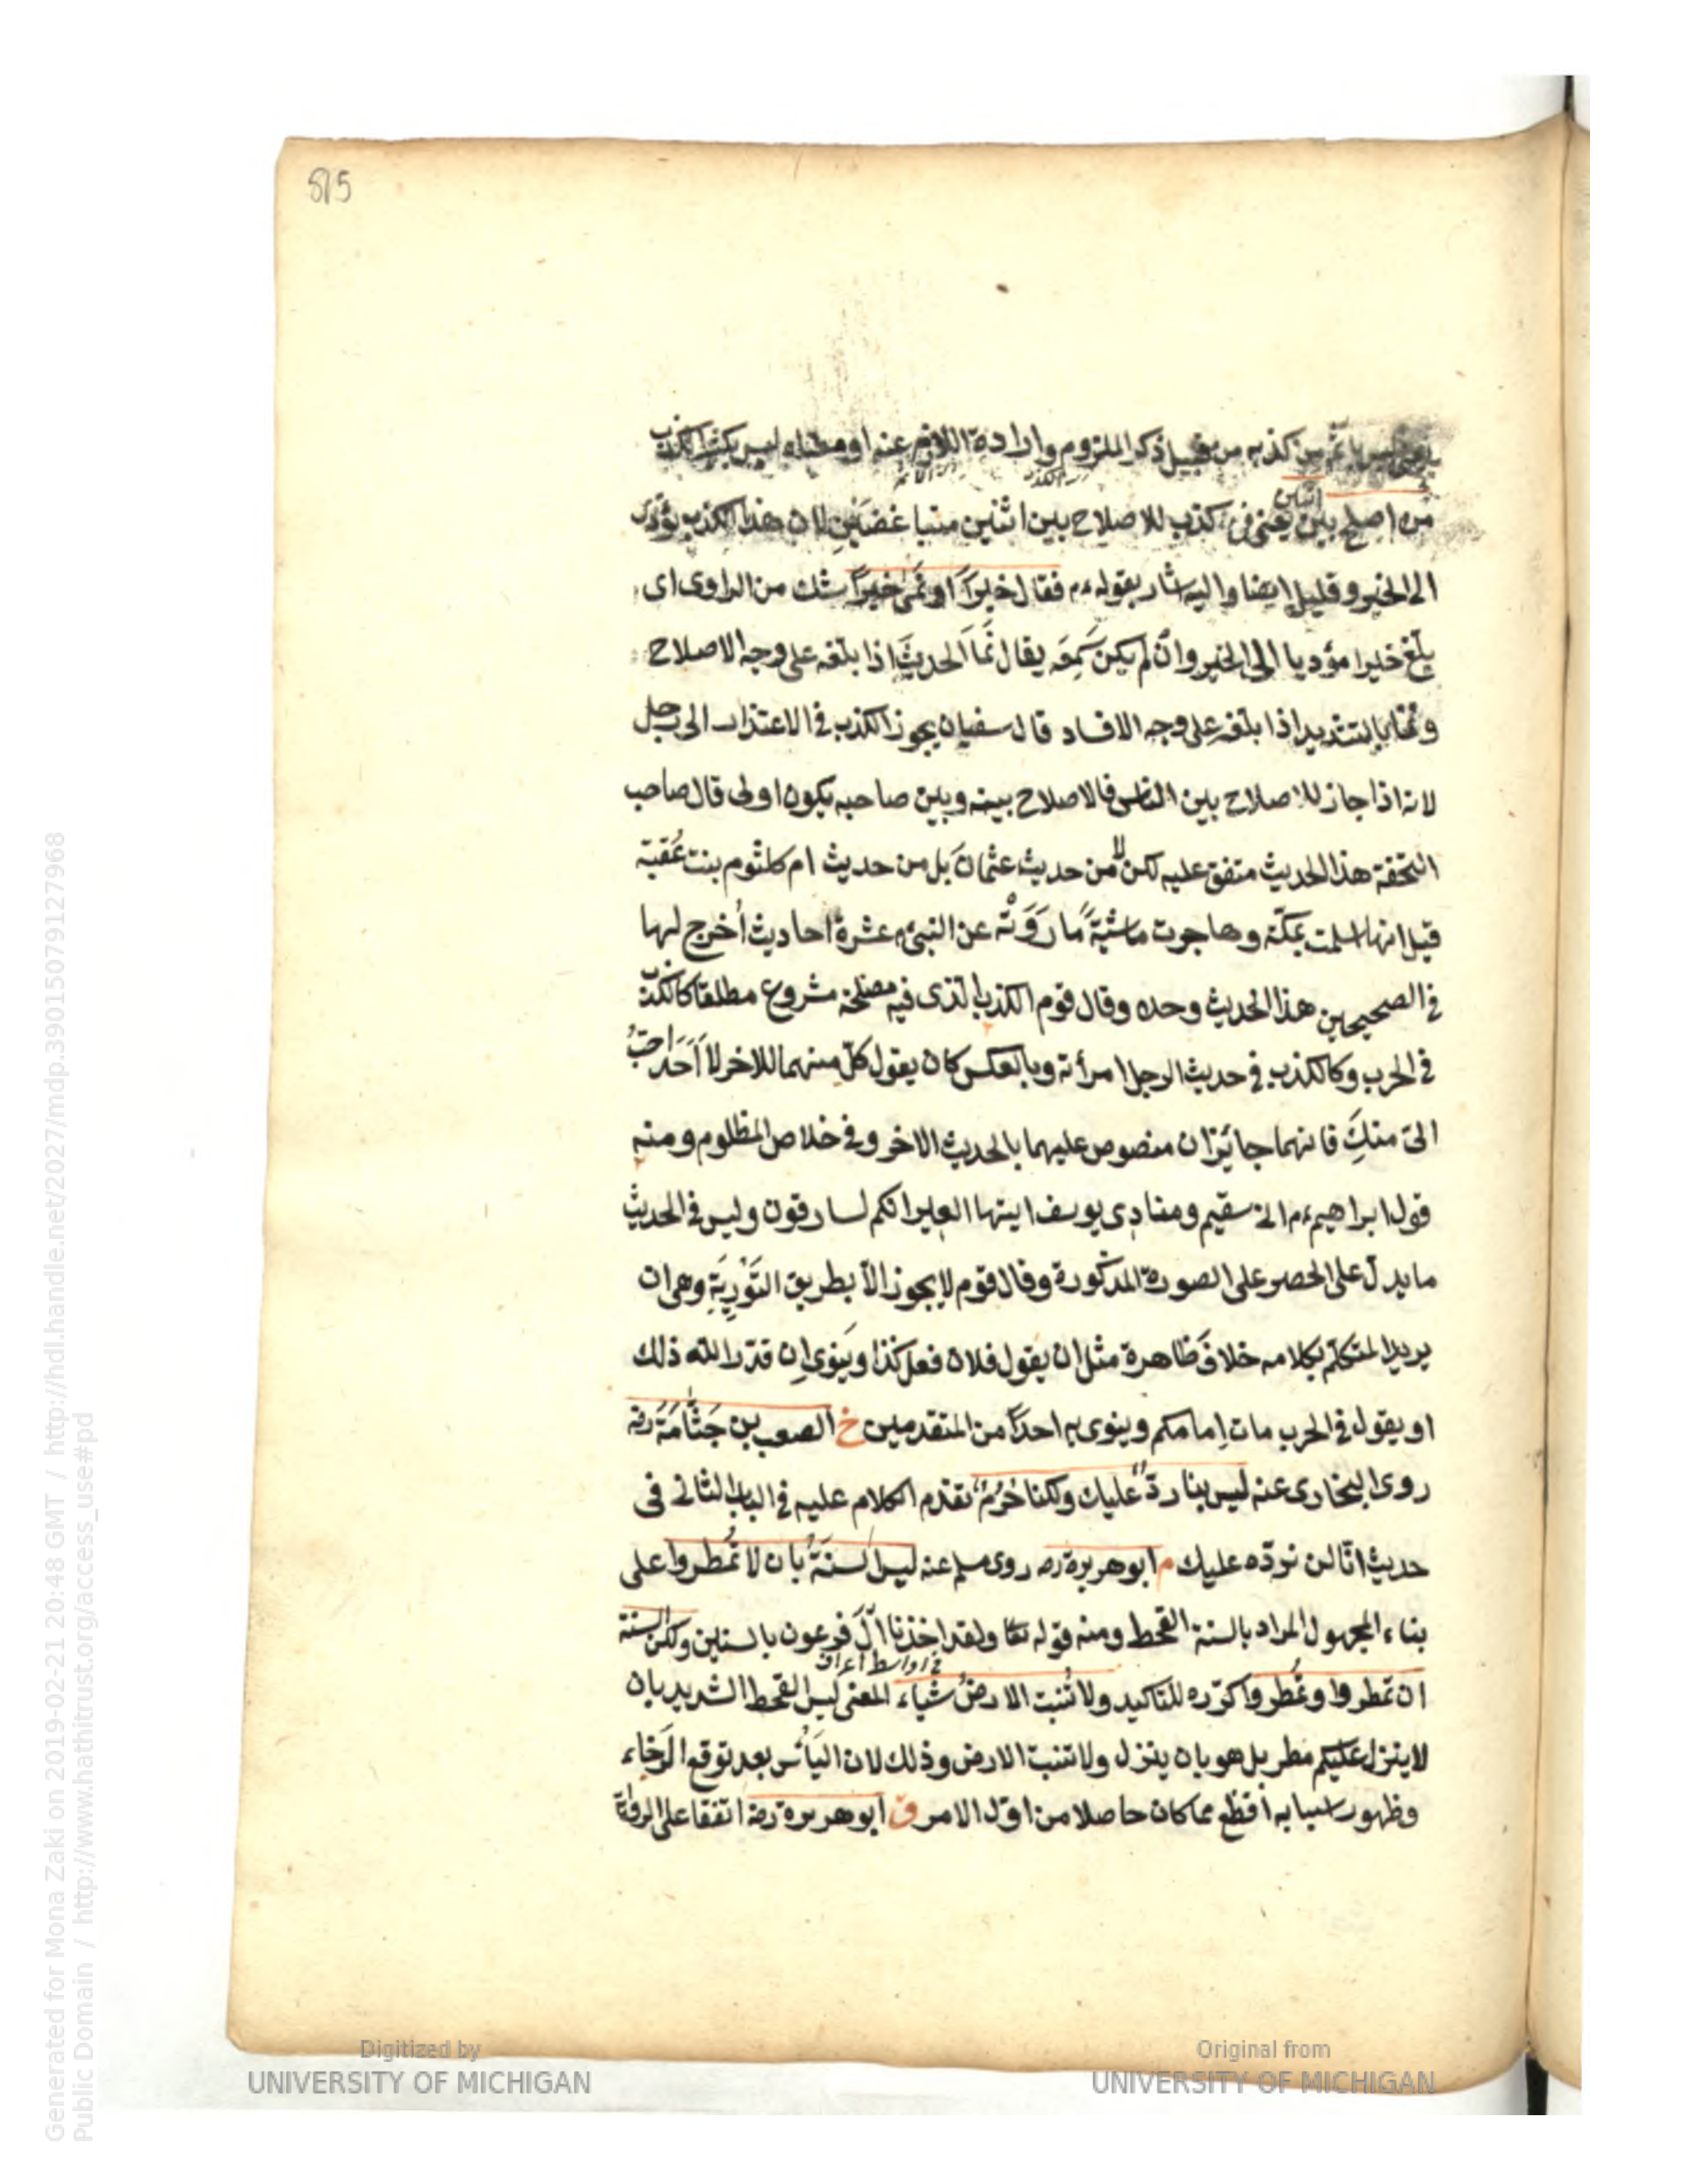 515
كذبه من قبيل ذكر الملزوم وارادة اللازم عنه او معناه ليس بكثير الكذب
من اصلح بين اثنين يعنى فى كذب للاصلاح بين اثنين متباغضين لان هذا الكذب يؤدى
الى الخير وقليل ايضا واليه اشار بقوله ءم فقال خيرًا او نمى خيرًا شك من الراوى اى
بلغ خيرا مؤديا الى الخير وان لم يكن سَمِعَه يقال نَمَا الحديثَ اذا بلغه على وجه الاصلاح
ونمّا بالتشديد اذا بلغه على وجه الافساد قال سفيان يجوز الكذب فى الاعتذار الى رجل
لانه اذا جاز للاصلاح بين الناس فالاصلاح بينه وبين صاحبه يكون اولى قال صاحب
التحفة هذا الحديث متفق عليه لكن لا من حديث عثمان بل من حديث ام كلثوم بنت عُقبة
قيل انها اسلمت بمكّة وهاجرت ماشيةً ما رَوَتْه عن النبىء عشرة احاديث اُخرج لها
فى الصحيحين هذا الحديث وحده وقال قوم الكذب الذى فيه مصلحة مشروع مطلقا كالكذب
فى الحرب وكالكذب فى حديث الرجل امرأته وبالعكس كان يقول كلّ منهما للاخر لا اَحَدَ احَبُّ
الىّ منكِ فانهما جائزان منصوص عليهما بالحديث الاخر وفى خلاص المظلوم ومنه
قول ابراهيم ءم انى سقيم ومنادِى يوسف ايتها العير انكم لسارقون وليس فى الحديث
ما يدل على الحصر على الصورة المذكورة وقال قوم لا يجوز الاّ بطريق التَوْرِيَةِ وهى ان
يريد المتكلّم بكلامه خلافَ ظاهره مثل ان يقول فلان فعل كذا وينوى اِن قدّر الله ذلك
او يقول فى الحرب مات اِمامكم وينوى به احدًا من المتقدمين خ الصعب بن جَثَّامَةَ رضه
روى البخارى عنه ليس بنا ردّ عليك ولكنا حُرُمٌ تقدّم الكلام عليه فى الباب الثانى فى
حديث انّا لن نردّه عليك م ابو هريرة رضه روى مسلم عنه ليس السنَةُ بان لا تُمطروا على
بناء المجهول المراد بالسنة القحط ومنه قوله تعا ولقد اخذنا آلَ فرعون بالسنين ولكن السنة
فى اواسط اعراف
ان تمطروا وتُمطروا كرّره للتاكيد ولا تُنبت الارضُ شياء المعنى ليس القحط الشديد بان
لا ينزل عليكم مطر بل هو بان ينزل ولا تنبت الارض وذلك لان اليَأْس بعد توقع الرَخاء
وظهور اسبابه اَفظع مما كان حاصلا من اوّل الامر ق ابو هريرة رضه اتفقا على الرواية
Generated for Mona Zaki on 2019-02-21 20:48 GMT / http://hdl.handle.net/2027/mdp.39015079127968
Public Domain / http://www.hathitrust.org/access_use#pd
Digitized by
UNIVERSITY OF MICHIGAN
Original from
UNIVERSITY OF MICHIGAN